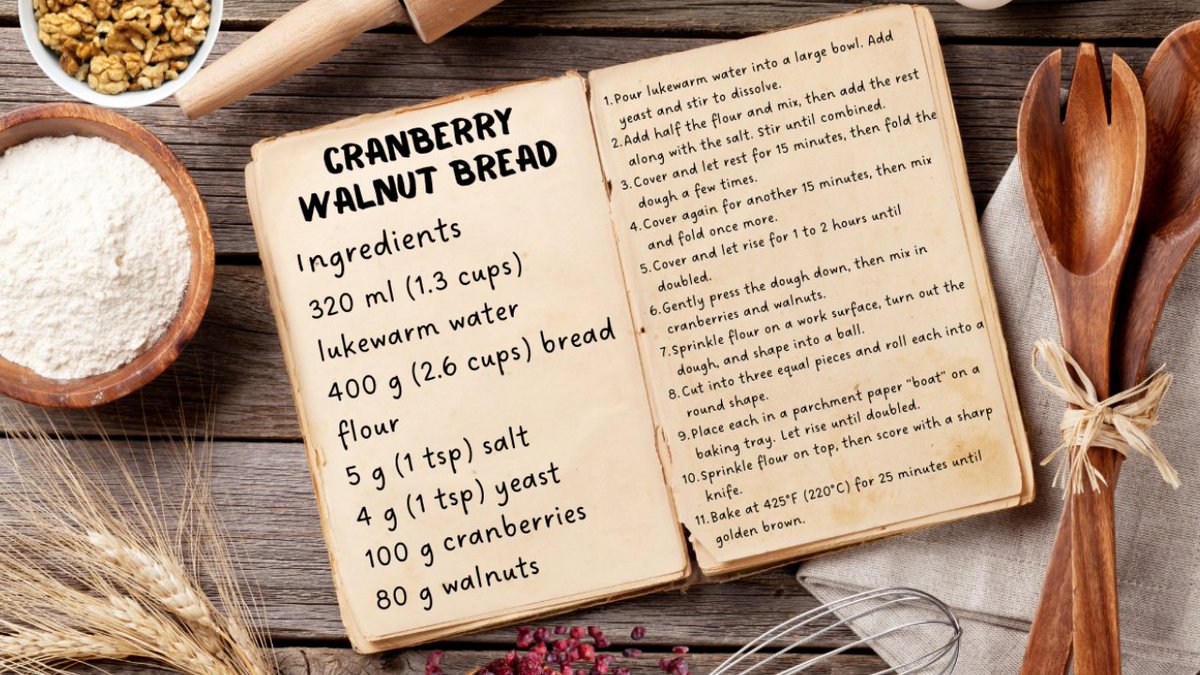 CRANBERRY
WALNUT BREAD
Ingredients
320 ml (1.3 cups)
lukewarm water
400 g (2.6 cups) bread
flour
5 g (1 tsp) salt
4 g (1 tsp) yeast
100 g cranberries
80 g walnuts
1. Pour lukewarm water into a large bowl. Add
yeast and stir to dissolve.
2. Add half the flour and mix, then add the rest
along with the salt. Stir until combined.
3. Cover and let rest for 15 minutes, then fold the
dough a few times.
4. Cover again for another 15 minutes, then mix
and fold once more.
5. Cover and let rise for 1 to 2 hours until
doubled.
6. Gently press the dough down, then mix in
cranberries and walnuts.
7. Sprinkle flour on a work surface, turn out the
dough, and shape into a ball.
8. Cut into three equal pieces and roll each into a
round shape.
9. Place each in a parchment paper "boat" on a
baking tray. Let rise until doubled.
10. Sprinkle flour on top, then score with a sharp
knife.
11. Bake at 425°F (220°C) for 25 minutes until
golden brown.